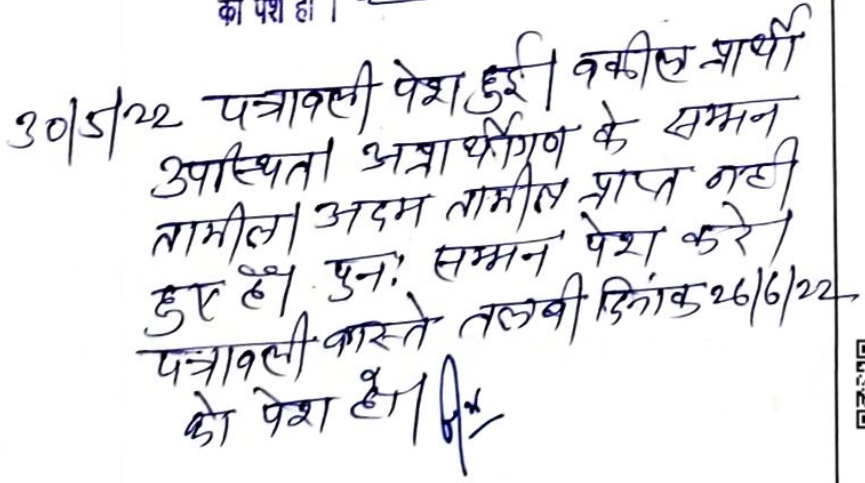 को पेश हो।
30/5/22 पत्रावली पेश हुई। वकील प्रार्थी
उपस्थित। अप्रार्थीगण के सम्मन
तामील। अदम तामील प्राप्त नही
हुए है। पुनः सम्मन पेश करे।
पत्रावली वास्ते तलबी दिनांक 26/6/22
को पेश हो।